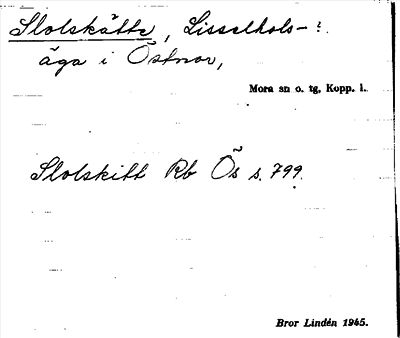 Slolskätte, Lisselhols-:
äga i Östnor,
Mora sn o. tg, Kopp. l.
Slolskitt Rb Ös s. 799.
Bror Lindén 1945.